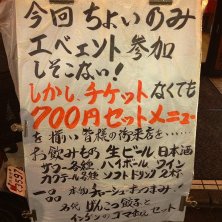 今回 ちょいのみ
エベェント参加
しそこない!
しかし、チケットなくても
700円セットメニュー
を揃い 皆様の御来店を……
お飲みもの 生ビール 日本酒
サワー各種 ハイボール ワイン
カクテル各種 ソフトドリンク 2杯
一品 本物チャーシューオツマみ
名代 げんこつ餃子と
セット